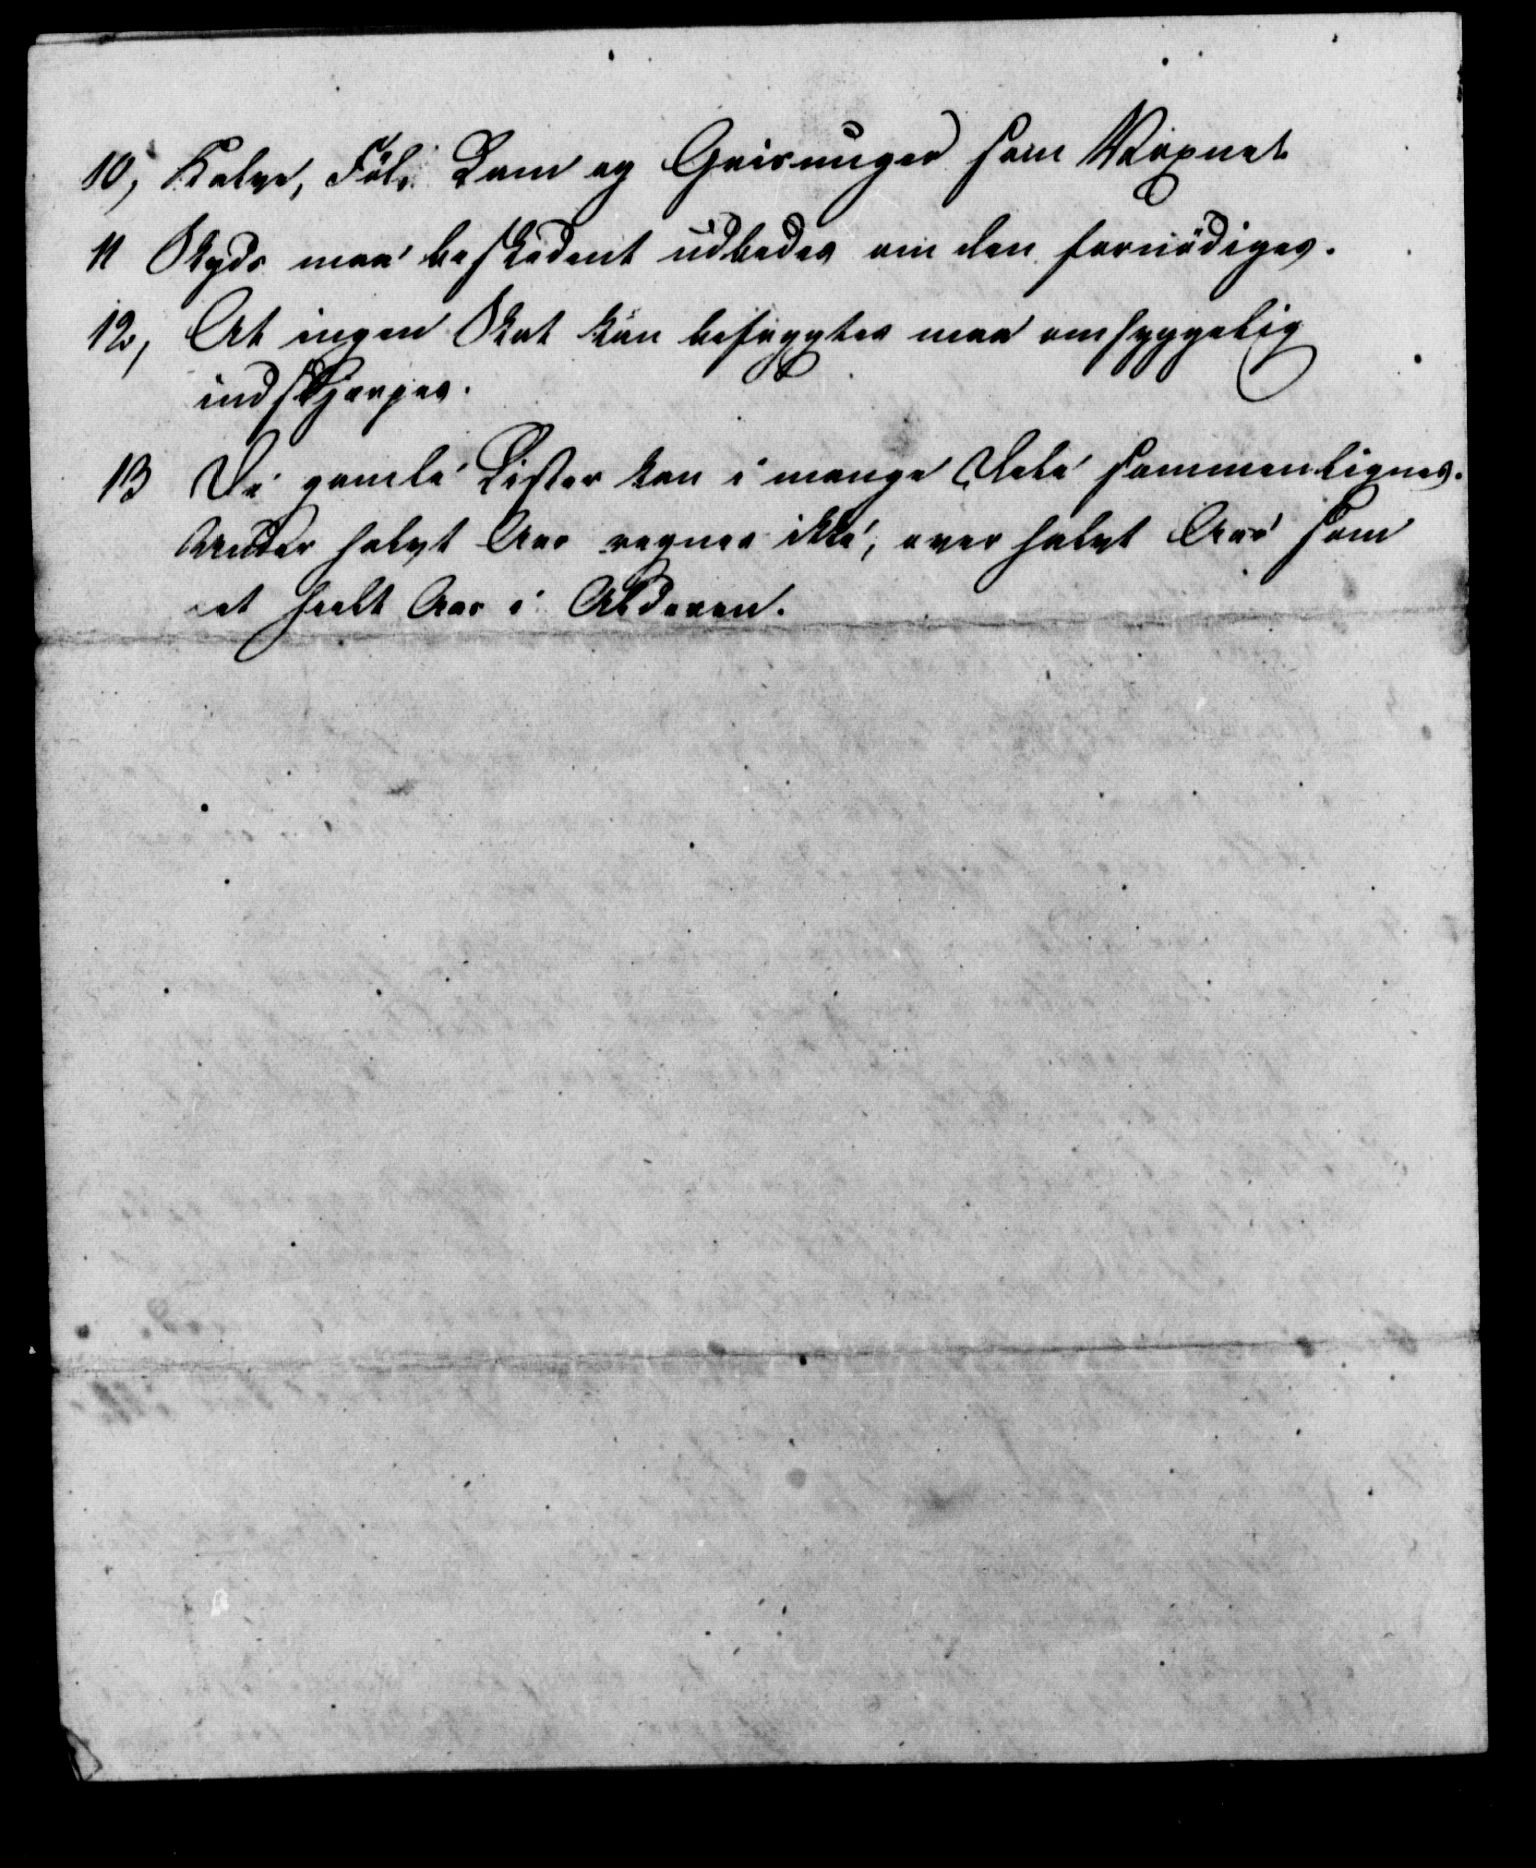 10, Kalve, Föl, Lam og Grisunger som Voxnet.
11 Skyds maa beskedent udbedes om den fornödiges.
12, At ingen Skat kan befrygtes maa omhyggelig
indskjærpes.
13 De gamle Lister kan i mange Dele sammenlignes.
Under halvt Aar regnes ikke, over halvt Aar som
et heelt Aar i Alderen.